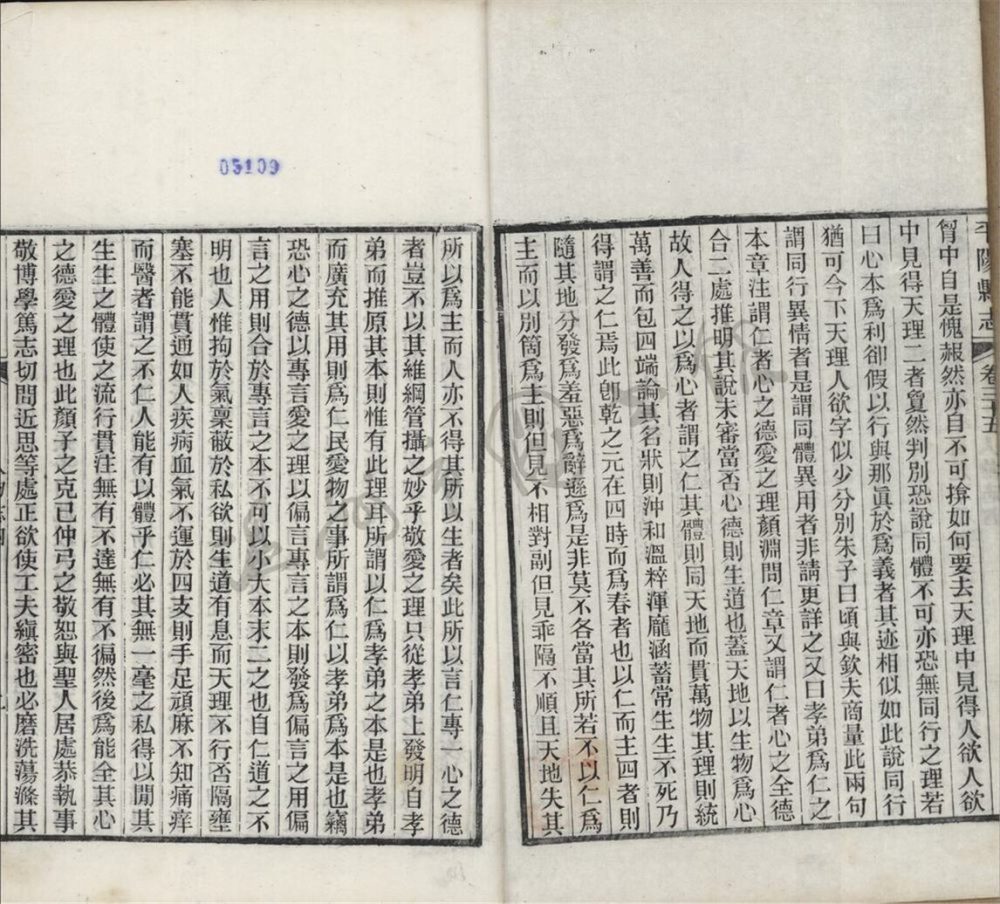 平陽縣志 卷三十五
胷中自是愧赧然亦自不可揜如何要去天理中見得人欲人欲
中見得天理二者夐然判別恐說同體不可亦恐無同行之理若
曰心本為利卻假以行與那滇於為義者其迹相似如此說同行
猶可今下天理人欲字似少分別朱子曰頃與欽夫商量此兩句
謂同行異情者是謂同體異用者非請更詳之又曰孝弟為仁之
本章注謂仁者心之德愛之理顏淵問仁章又謂仁者心之全德
合二處推明其說未審當否心德則生道也蓋天地以生物為心
故人得之以為心者謂之仁其體則同天地而貫萬物其理則統
萬善而包四端論其名狀則沖和溫粹渾龐涵蓄常生生不死乃
得謂之仁焉此卽乾之元在四時而為春者也以仁而主四者則
隨其地分發為羞惡為辭遜為是非莫不各當其所若不以仁為
主而以別箇為主則但見不相對副但見乖隔不順且天地失其
所以為主而人亦不得其所以生者矣此所以言仁專一心之德
者豈不以其維綱管攝之妙乎敬愛之理只從孝弟上發明自孝
弟而推原其本則惟有此理耳所謂以仁為孝弟之本是也孝弟
而廣充其用則為仁民愛物之事所謂為仁以孝弟為本是也竊
恐心之德以專言愛之理以偏言專言之本則發為偏言之用偏
言之用則合於專言之本不可以小大本末二之也自仁道之不
明也人惟拘於氣稟蔽於私欲則生道有息而天理不行否隔壅
塞不能貫通如人疾病血氣不運於四支則手足頑麻不知痛痒
而醫者謂之不仁人能有以體乎仁必其無一毫之私得以閒其
生生之體使之流行貫注無有不達無有不徧然後為能全其心
之德愛之理也此顏子之克己仲弓之敬恕與聖人居處恭執事
敬博學篤志切問近思等處正欲使工夫縝密也必磨洗蕩滌其
05109